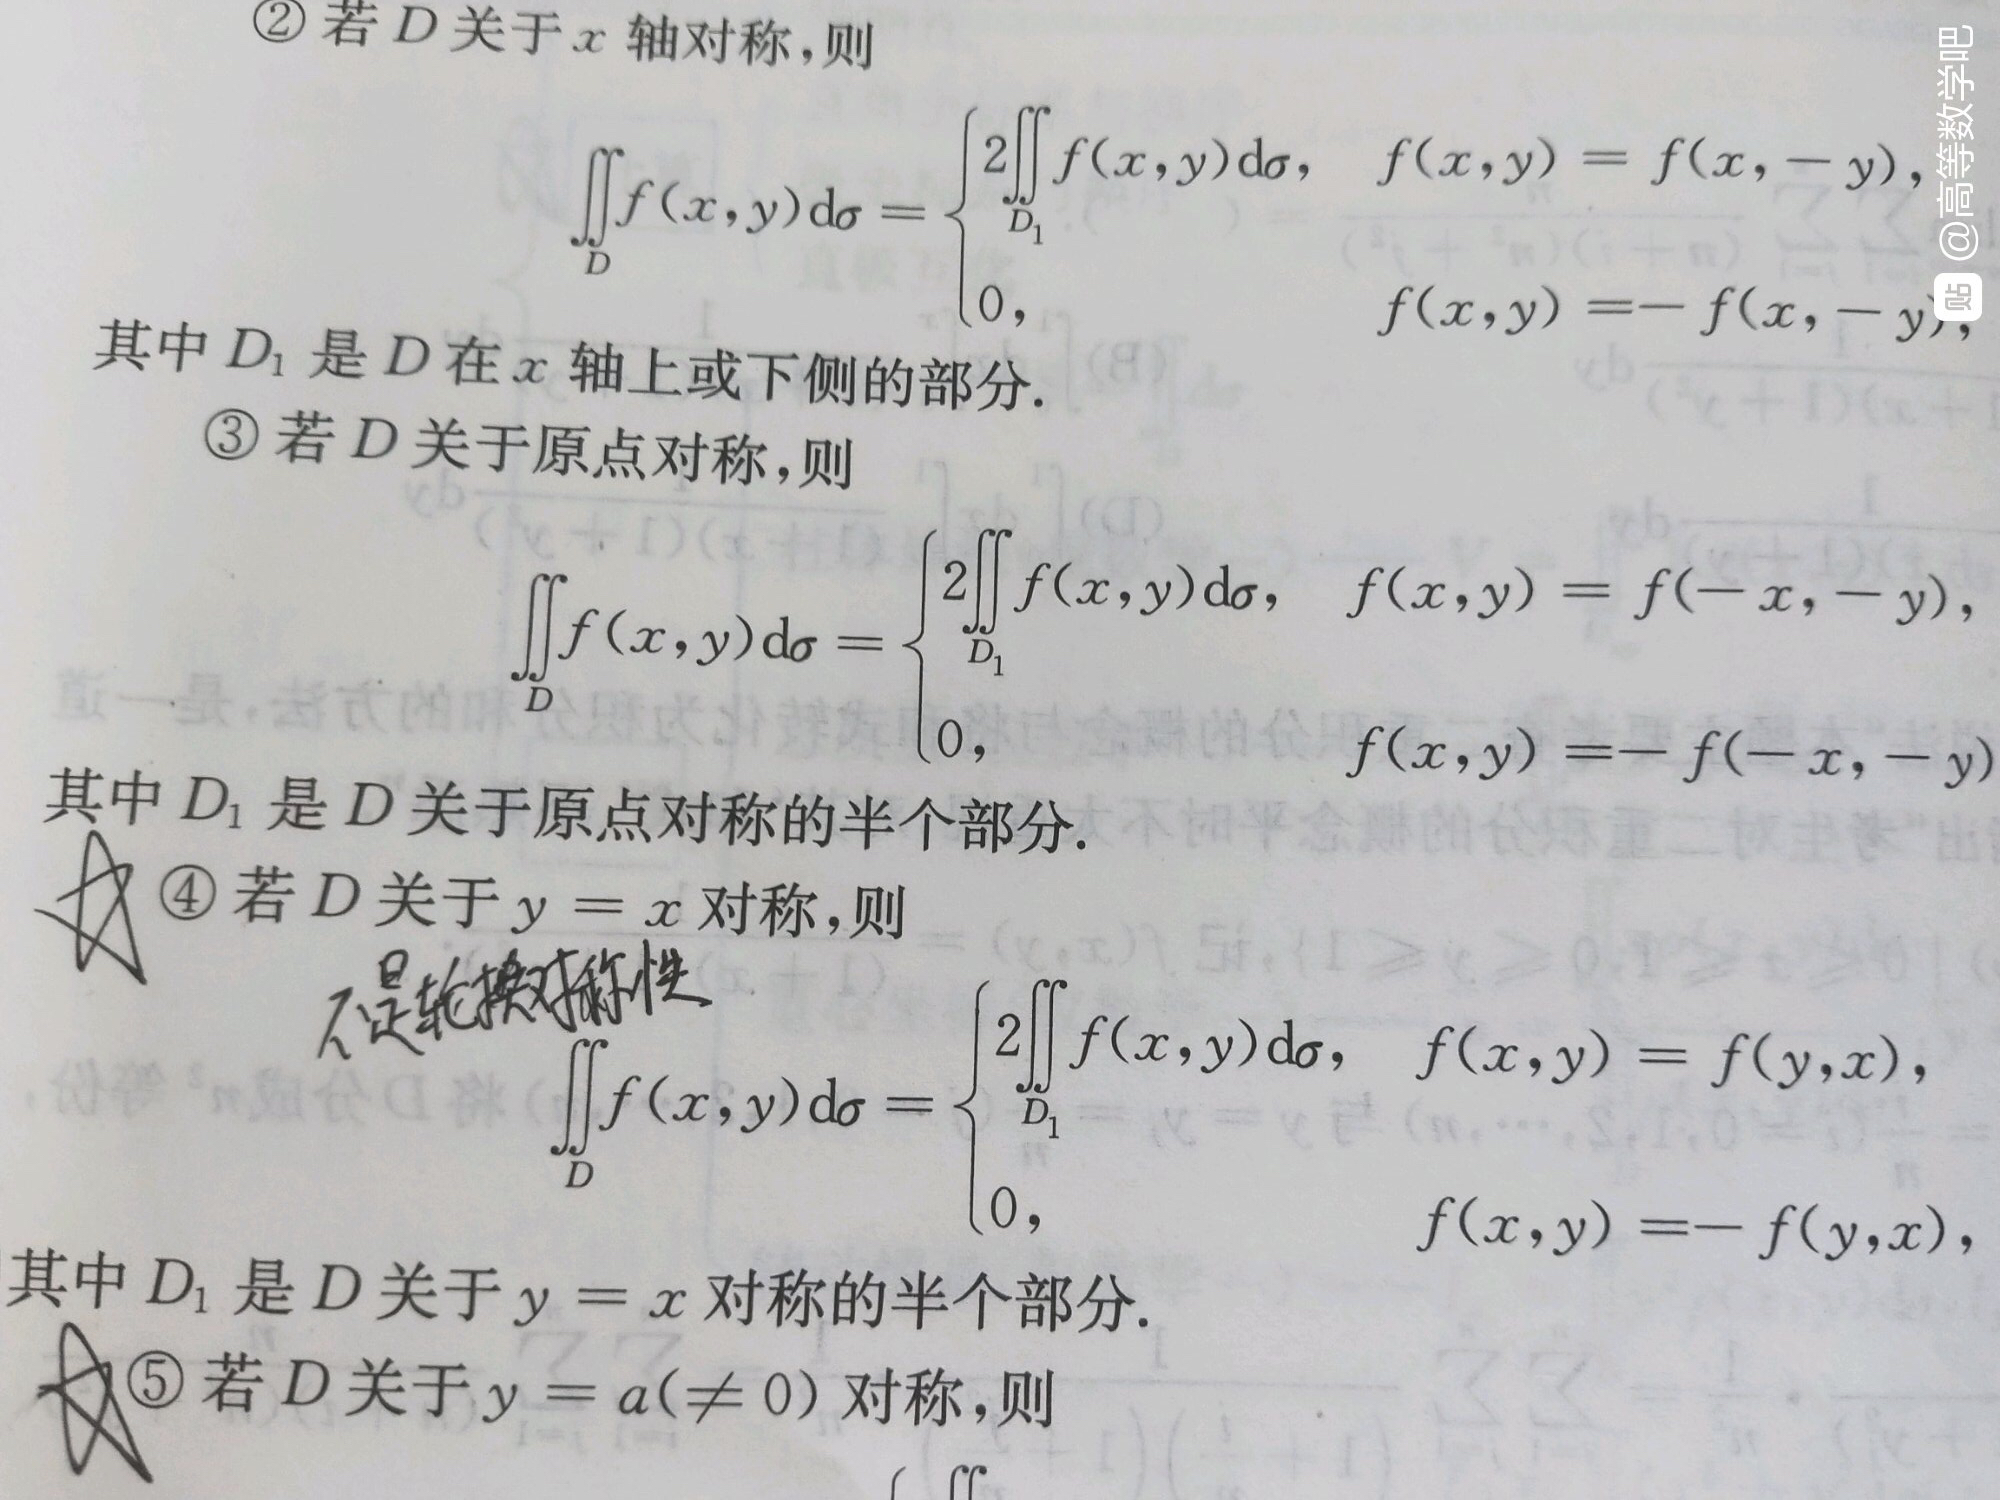 ② 若 D 关于 x 轴对称,则
∬_D f(x,y)dσ = { 2∬_{D₁} f(x,y)dσ, f(x,y) = f(x,-y),
0, f(x,y) =- f(x,-y),
其中 D₁ 是 D 在 x 轴上或下侧的部分.
③ 若 D 关于原点对称,则
∬_D f(x,y)dσ = { 2∬_{D₁} f(x,y)dσ, f(x,y) = f(-x,-y),
0, f(x,y) =- f(-x,-y)
其中 D₁ 是 D 关于原点对称的半个部分.
④ 若 D 关于 y = x 对称,则
不是轮换对称性
∬_D f(x,y)dσ = { 2∬_{D₁} f(x,y)dσ, f(x,y) = f(y,x),
0, f(x,y) =- f(y,x),
其中 D₁ 是 D 关于 y = x 对称的半个部分.
⑤ 若 D 关于 y = a(≠ 0) 对称,则
贴 @高等数学吧